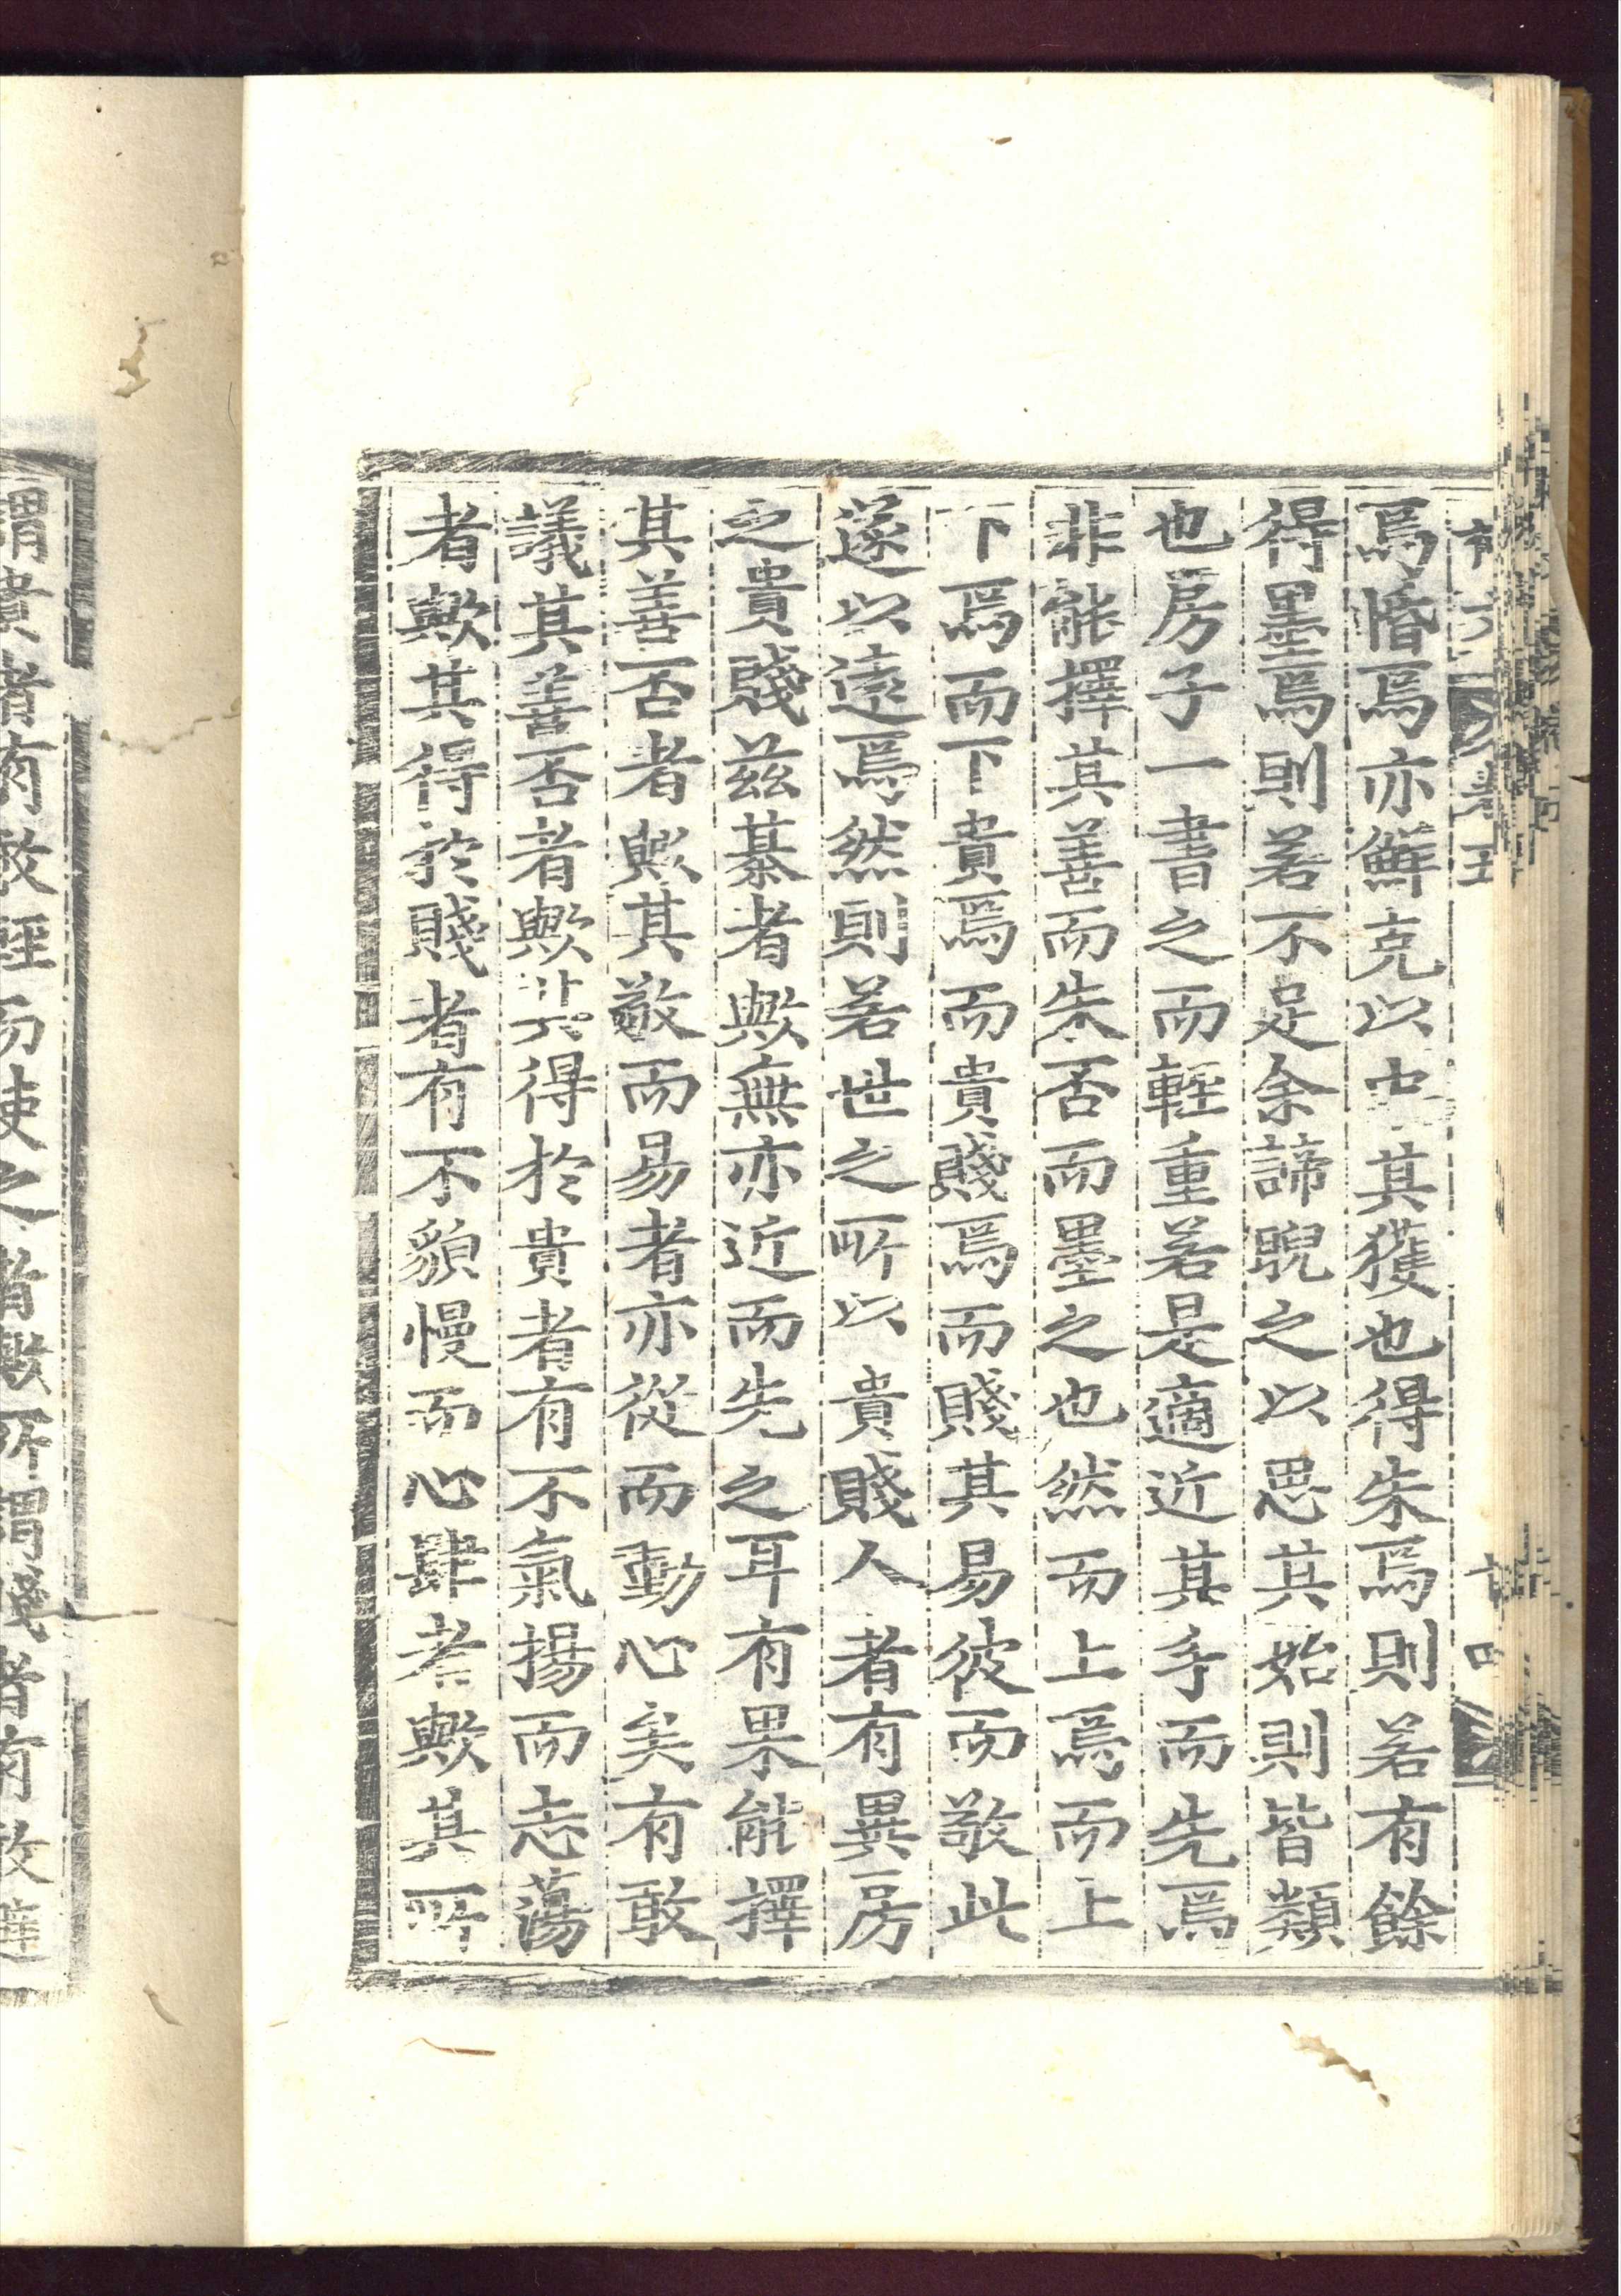 焉惛焉亦鮮克以中其獲也得朱焉則若有餘
得墨焉則若不足余諦睨之以思其始則皆類
也房子一書之而輕重若是適近其手而先焉
非能擇其善而朱否而墨之也然而上焉而上
下焉而下貴焉而貴賤焉而賤其易彼而敬此
遂以遠焉然則若世之所以貴賤人者有異房
之貴賤茲棊者歟無亦近而先之耳有果能擇
其善否者歟其敬而易者亦從而動心矣有敢
議其善否者歟其得於貴者有不氣揚而志蕩
者歟其得於賤者有不貌慢而心肆者歟其所
謂貴者有敢輕而使之者歟所謂賤者有敢避